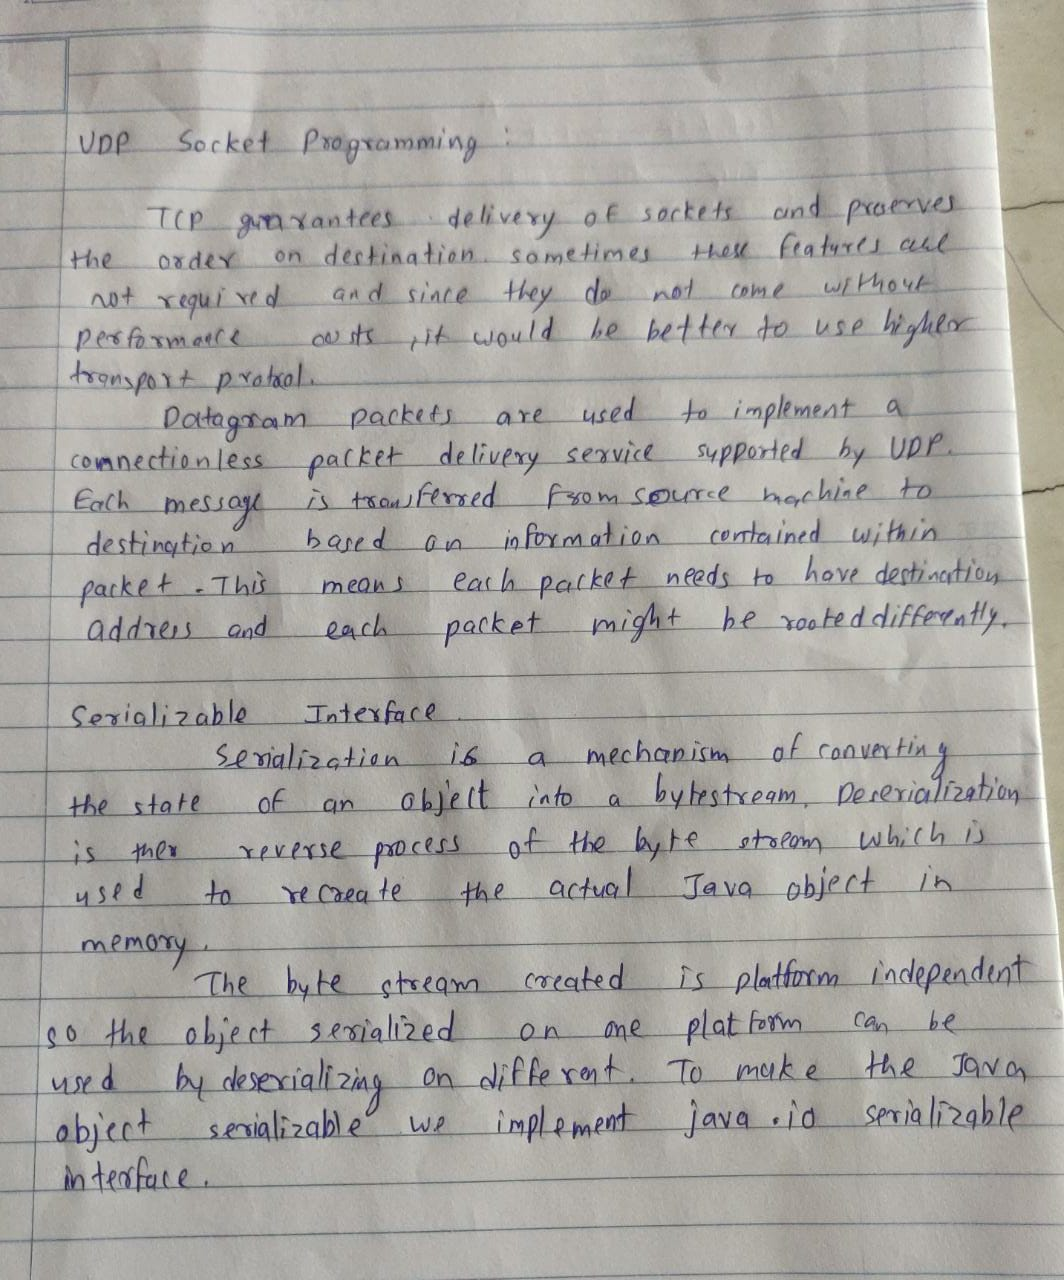 UDP Socket Programming :
TCP guarantees delivery of sockets and preserves
the order on destination. sometimes these features are
not required and since they do not come without
performance costs , it would be better to use higher
transport protocol.
Datagram packets are used to implement a
connectionless packet delivery service supported by UDP.
Each message is transferred from source machine to
destination based on information contained within
packet. This means each packet needs to have destination
address and each packet might be rooted differently.
Serializable Interface
Serialization is a mechanism of converting
the state of an object into a bytestream. Deserialization
is then reverse process of the byte stream which is
used to recreate the actual Java object in
memory.
The byte stream created is platform independent
so the object serialized on one platform can be
used by deserializing on different. To make the Java
object serializable we implement java.io serializable
interface.